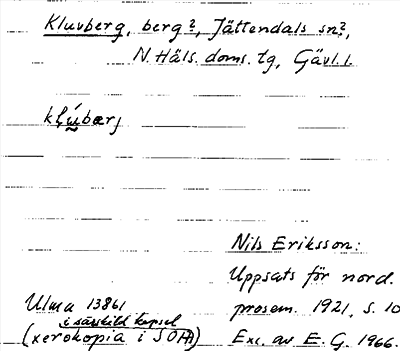 Kluvberg, berg?, Jättendals sn?,
N. Häls. doms. tg, Gävl. l.
klú̯bærj
Nils Eriksson:
Uppsats för nord.
prosem. 1921, S. 10
Exc. av E. G. 1966.
Ulma 13861
i särskild kapsel
(xerokopia i SOFA)